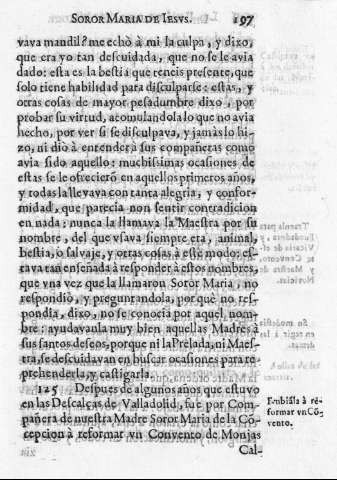 SOROR MARIA DE IESVS. 197
vava mandil? me echò à mi la culpa, y dixo,
que era yo tan descuidada, que no se le avia
dado: esta es la bestia que teneis presente, que
solo tiene habilidad para disculparse: estas, y
otras cosas de mayor pesadumbre dixo, por
probar su virtud, acomulandola lo que no avia
hecho, por ver si se disculpava, y jamàs lo hi-
zo, ni diò à entender à sus compañeras como
avia sido aquello: muchissimas ocasiones de
estas se le ofreciero en aquellos primeros años,
y todas la llevava con tanta alegria, y confor-
midad, que parecia non sentir contradicion
en nada: nunca la llamava la Maestra por su
nombre, del que vsava siempre era, animal,
bestia, ò salvaje, y otras cosas à este modo: es-
tava tan enseñada à responder à estos nombres,
que vna vez que la llamaron Soror Maria, no
respondiò, y preguntandola, por què no res-
pondia, dixo, no se conocia por aquel nom-
bre: ayudavanla muy bien aquellas Madres à
sus santos deseos, porque ni la Prelada, ni Maes-
tra, se descuidavan en buscar ocasiones para re-
prehenderla, y castigarla.
125 Despues de algunos años que estuvo
en las Descalças de Valladolid, fue por Com-
pañera de nuestra Madre Soror Maria de la Cõ-
cepcion à reformar vn Convento de Monjas
Cal-
Embiála à re-
formar vn Cõ-
vento.